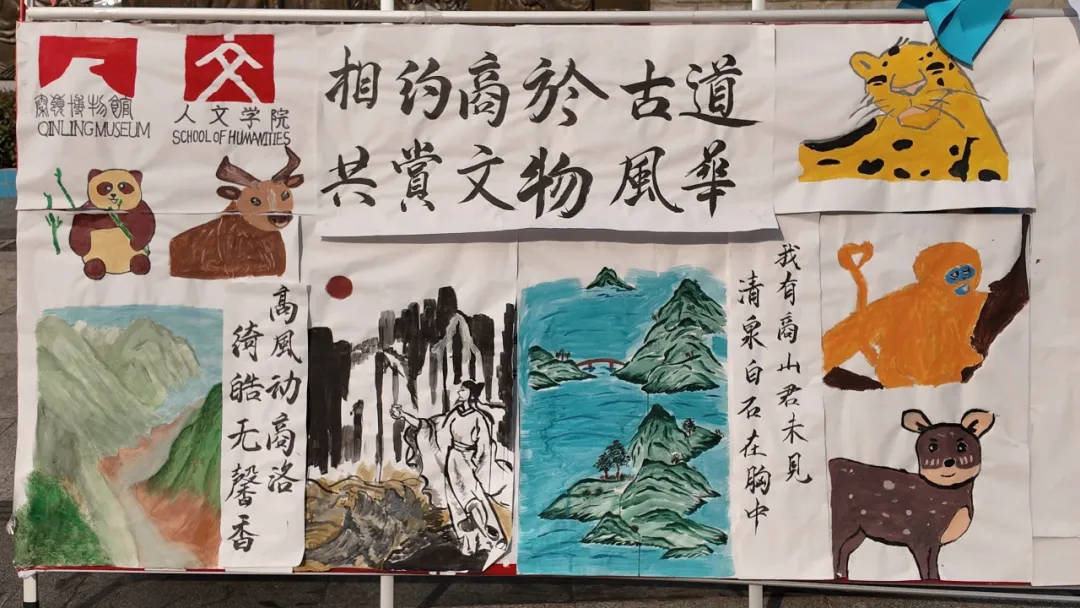 秦嶺博物館
QINLING MUSEUM
人文学院
SCHOOL OF HUMANITIES
相约商於古道
共賞文物風華
高風动商洛
绮皓无馨香
我有商山君未见
清泉白石在胸中